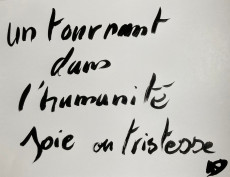 un tournant
dans
l'humanité
joie ou tristesse